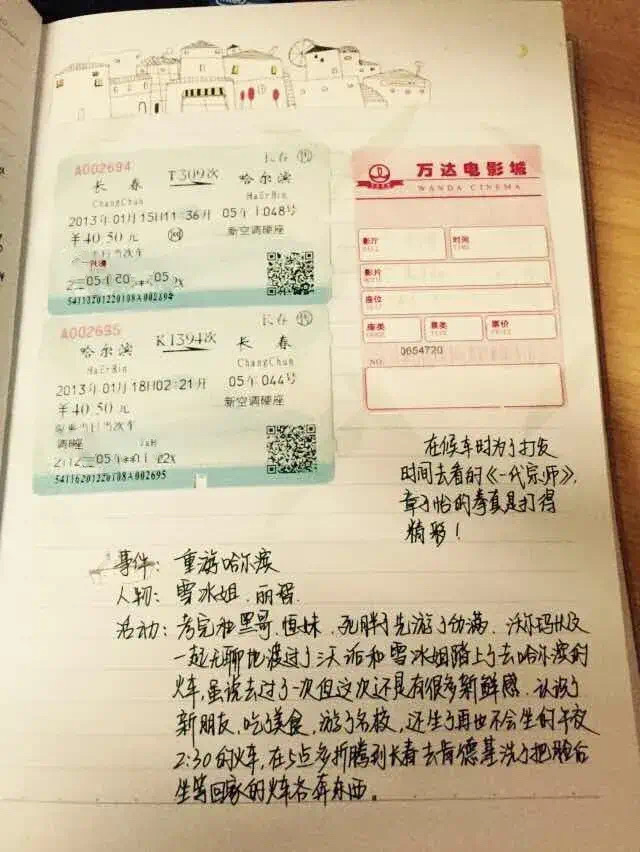 A002694
长春 售
长春 T309次 哈尔滨
ChangChun HaErBin
2013年01月15日11:36开 05车048号
¥40.50元 新空调硬座
限乘当日当次车
54116201220108A002694
A002695
长春 售
哈尔滨 K1394次 长春
HaErBin ChangChun
2013年01月18日02:21开 05车044号
¥40.50元 新空调硬座
限乘当日当次车
54116201220108A002695
万达电影城
WANDA CINEMA
影厅 时间
影片
座位
座类 票类 票价
NO. 0654720
在候车时为了打发
时间去看的《一代宗师》,
章子怡的拳真是打得
精彩!
事件: 重游哈尔滨
人物: 雪冰姐、丽智.
活动: 考完和黑哥、恒妹、死胖子先游了伪满、沃尔玛以及
一起无聊地渡过了三天后和雪冰姐踏上了去哈尔滨的
火车,虽说去过了一次但这次还是有很多新鲜感.认识了
新朋友,吃了美食,游了名校,还坐了再也不会坐的午夜
2:30的火车,在5点多折腾到长春去肯德基洗了把脸后
坐等回家的火车各奔东西。